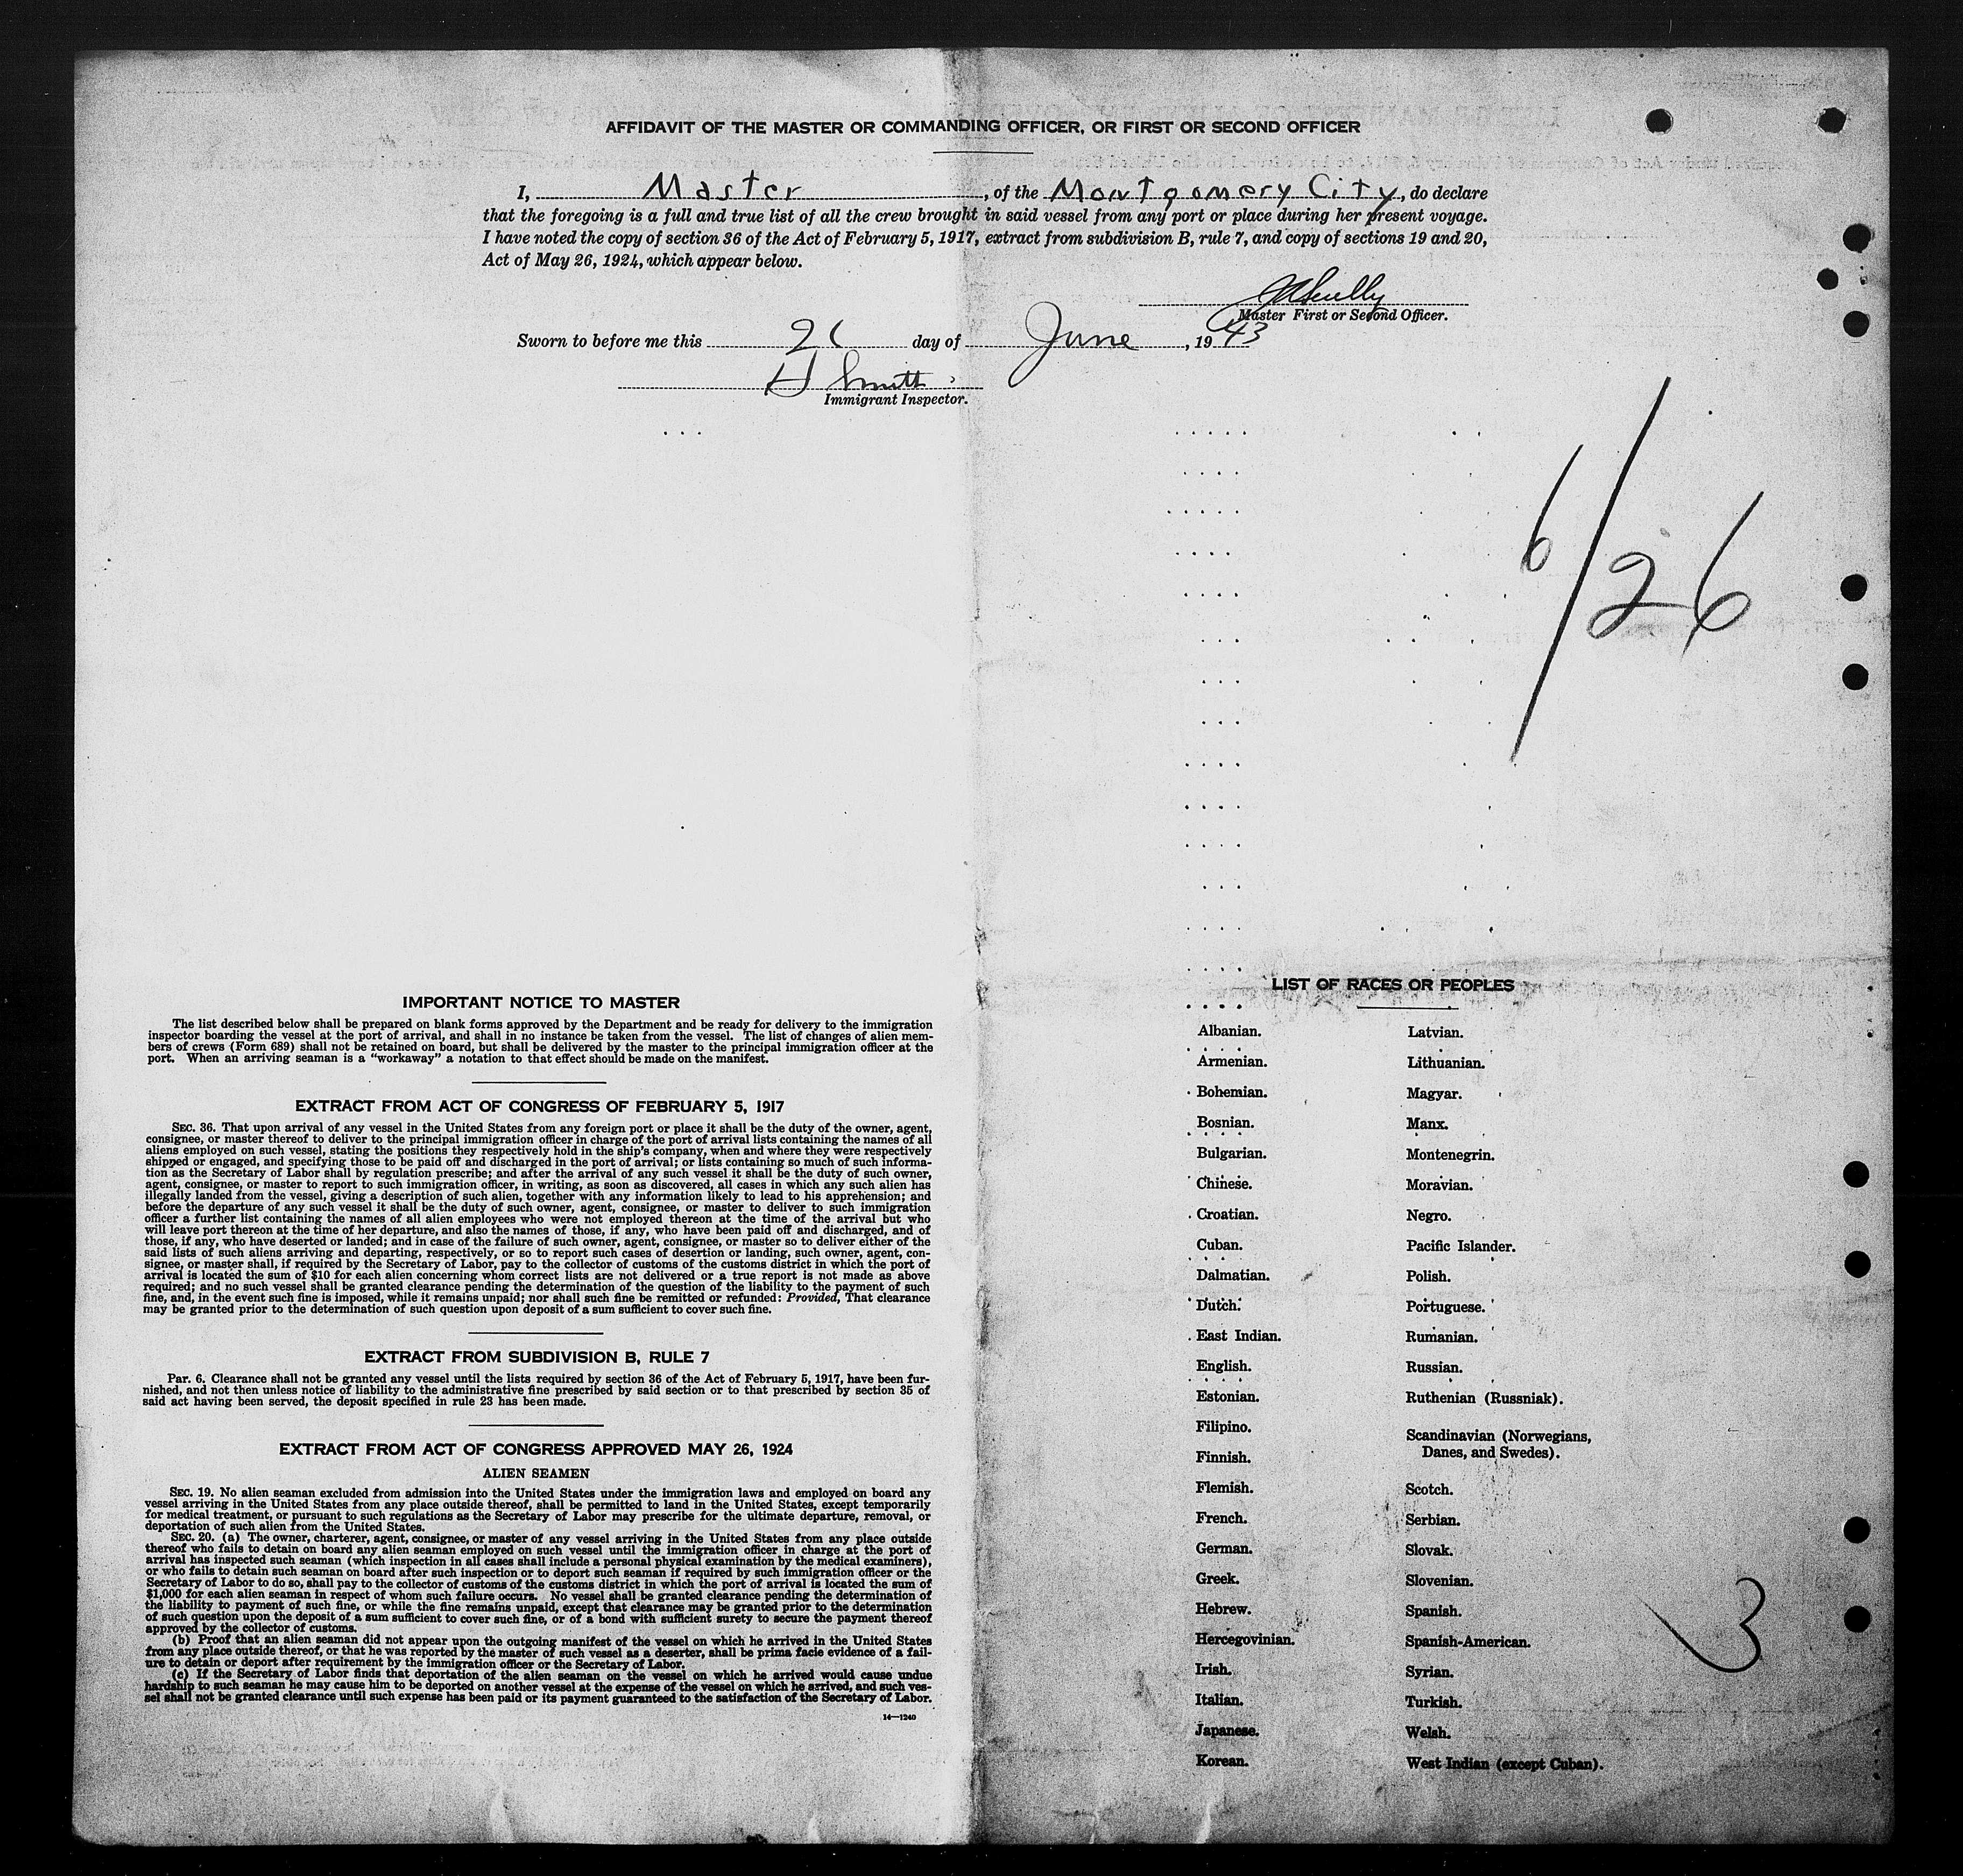 AFFIDAVIT OF THE MASTER OR COMMANDING OFFICER, OR FIRST OR SECOND OFFICER
I, Master, of the Montgomery City, do declare
that the foregoing is a full and true list of all the crew brought in said vessel from any port or place during her present voyage.
I have noted the copy of section 36 of the Act of February 5, 1917, extract from subdivision B, rule 7, and copy of sections 19 and 20,
Act of May 26, 1924, which appear below.
Master First or Second Officer.
Sworn to before me this 26 day of June, 1943
H Smith
Immigrant Inspector.
6/26
IMPORTANT NOTICE TO MASTER
The list described below shall be prepared on blank forms approved by the Department and be ready for delivery to the immigration
inspector boarding the vessel at the port of arrival, and shall in no instance be taken from the vessel. The list of changes of alien mem-
bers of crews (Form 689) shall not be retained on board, but shall be delivered by the master to the principal immigration officer at the
port. When an arriving seaman is a "workaway" a notation to that effect should be made on the manifest.
EXTRACT FROM ACT OF CONGRESS OF FEBRUARY 5, 1917
SEC. 36. That upon arrival of any vessel in the United States from any foreign port or place it shall be the duty of the owner, agent,
consignee, or master thereof to deliver to the principal immigration officer in charge of the port of arrival lists containing the names of all
aliens employed on such vessel, stating the positions they respectively hold in the ship's company, when and where they were respectively
shipped or engaged, and specifying those to be paid off and discharged in the port of arrival; or lists containing so much of such informa-
tion as the Secretary of Labor shall by regulation prescribe; and after the arrival of any such vessel it shall be the duty of such owner,
agent, consignee, or master to report to such immigration officer, in writing, as soon as discovered, all cases in which any such alien has
illegally landed from the vessel, giving a description of such alien, together with any information likely to lead to his apprehension; and
before the departure of any such vessel it shall be the duty of such owner, agent, consignee, or master to deliver to such immigration
officer a further list containing the names of all alien employees who were not employed thereon at the time of the arrival but who
will leave port thereon at the time of her departure, and also the names of those, if any, who have been paid off and discharged, and of
those, if any, who have deserted or landed; and in case of the failure of such owner, agent, consignee, or master so to deliver either of the
said lists of such aliens arriving and departing, respectively, or so to report such cases of desertion or landing, such owner, agent, con-
signee, or master shall, if required by the Secretary of Labor, pay to the collector of customs of the customs district in which the port of
arrival is located the sum of $10 for each alien concerning whom correct lists are not delivered or a true report is not made as above
required; and no such vessel shall be granted clearance pending the determination of the question of the liability to the payment of such
fine, and, in the event such fine is imposed, while it remains unpaid; nor shall such fine be remitted or refunded: Provided, That clearance
may be granted prior to the determination of such question upon deposit of a sum sufficient to cover such fine.
EXTRACT FROM SUBDIVISION B, RULE 7
Par. 6. Clearance shall not be granted any vessel until the lists required by section 36 of the Act of February 5, 1917, have been fur-
nished, and not then unless notice of liability to the administrative fine prescribed by said section or to that prescribed by section 35 of
said act having been served, the deposit specified in rule 23 has been made.
EXTRACT FROM ACT OF CONGRESS APPROVED MAY 26, 1924
ALIEN SEAMEN
SEC. 19. No alien seaman excluded from admission into the United States under the immigration laws and employed on board any
vessel arriving in the United States from any place outside thereof, shall be permitted to land in the United States, except temporarily
for medical treatment, or pursuant to such regulations as the Secretary of Labor may prescribe for the ultimate departure, removal, or
deportation of such alien from the United States.
SEC. 20. (a) The owner, charterer, agent, consignee, or master of any vessel arriving in the United States from any place outside
thereof who fails to detain on board any alien seaman employed on such vessel until the immigration officer in charge at the port of
arrival has inspected such seaman (which inspection in all cases shall include a personal physical examination by the medical examiners),
or who fails to detain such seaman on board after such inspection or to deport such seaman if required by such immigration officer or the
Secretary of Labor to do so, shall pay to the collector of customs of the customs district in which the port of arrival is located the sum of
$1,000 for each alien seaman in respect of whom such failure occurs. No vessel shall be granted clearance pending the determination of
the liability to the payment of such fine, or while the fine remains unpaid, except that clearance may be granted prior to the determination
of such question upon the deposit of a sum sufficient to cover such fine, or of a bond with sufficient surety to secure the payment thereof
approved by the collector of customs.
(b) Proof that an alien seaman did not appear upon the outgoing manifest of the vessel on which he arrived in the United States
from any place outside thereof, or that he was reported by the master of such vessel as a deserter, shall be prima facie evidence of a fail-
ure to detain or deport after requirement by the immigration officer or the Secretary of Labor.
(c) If the Secretary of Labor finds that deportation of the alien seaman on the vessel on which he arrived would cause undue
hardship to such seaman he may cause him to be deported on another vessel at the expense of the vessel on which he arrived, and such ves-
sel shall not be granted clearance until such expense has been paid or its payment guaranteed to the satisfaction of the Secretary of Labor.
14—1240
LIST OF RACES OR PEOPLES
Albanian.
Armenian.
Bohemian.
Bosnian.
Bulgarian.
Chinese.
Croatian.
Cuban.
Dalmatian.
Dutch.
East Indian.
English.
Estonian.
Filipino.
Finnish.
Flemish.
French.
German.
Greek.
Hebrew.
Hercegovinian.
Irish.
Italian.
Japanese.
Korean.
Latvian.
Lithuanian.
Magyar.
Manx.
Montenegrin.
Moravian.
Negro.
Pacific Islander.
Polish.
Portuguese.
Rumanian.
Russian.
Ruthenian (Russniak).
Scandinavian (Norwegians,
Danes, and Swedes).
Scotch.
Serbian.
Slovak.
Slovenian.
Spanish.
Spanish-American.
Syrian.
Turkish.
Welsh.
West Indian (except Cuban).
3